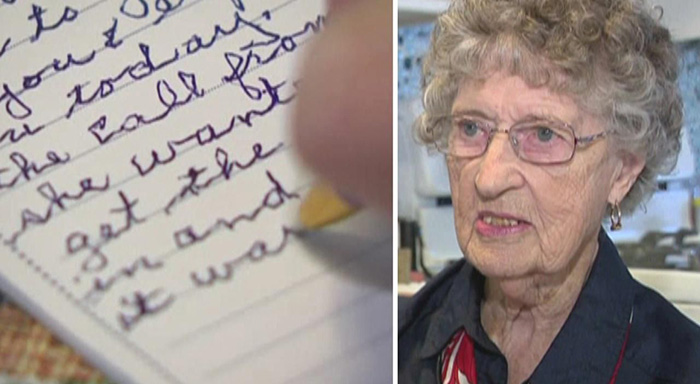 to
you &
today.
the call from
she want
get the
in and
it was